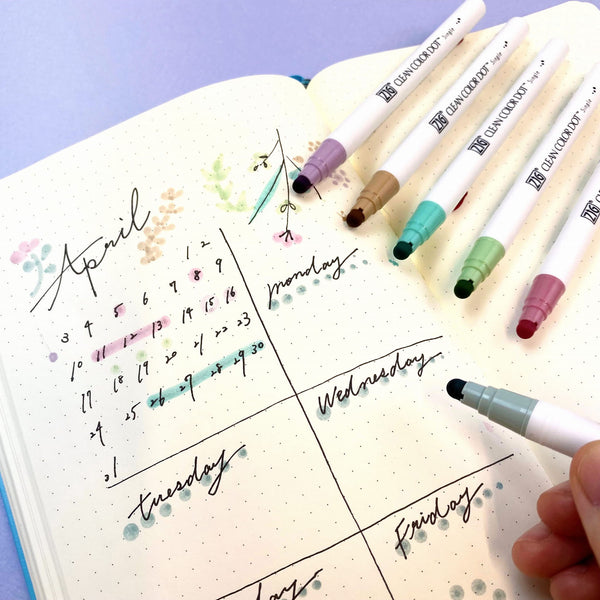 April
1 2
3 4 5 6 7 8 9
10 11 12 13 14 15 16
17 18 19 20 21 22 23
24 25 26 27 28 29 30
31
monday
Wednesday
Tuesday
Friday
ZIG CLEAN COLOR DOT™ Single
ZIG CLEAN COLOR DOT™ Single
ZIG CLEAN COLOR DOT™ Single
ZIG CLEAN COLOR DOT
ZIG